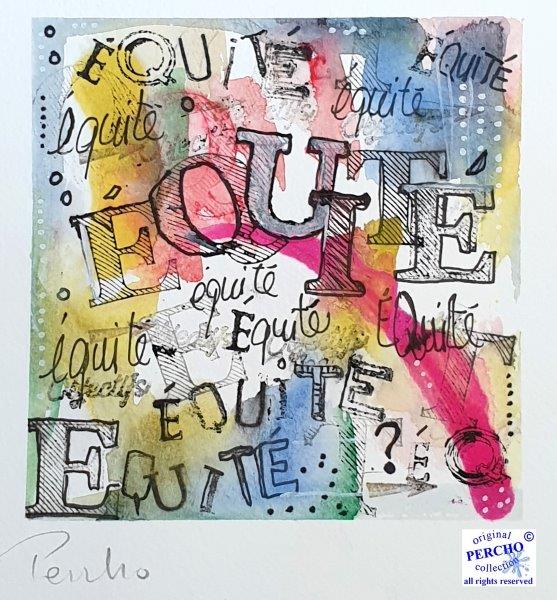 ÉQUITÉ
ÉQUITÉ
équité
équité
ÉQUITÉ
équité
Équité
ÉQuité
équité
ÉQUITÉ
ÉQUITÉ
?
É
Q
Percho
original ©
PERCHO
collection
all rights reserved